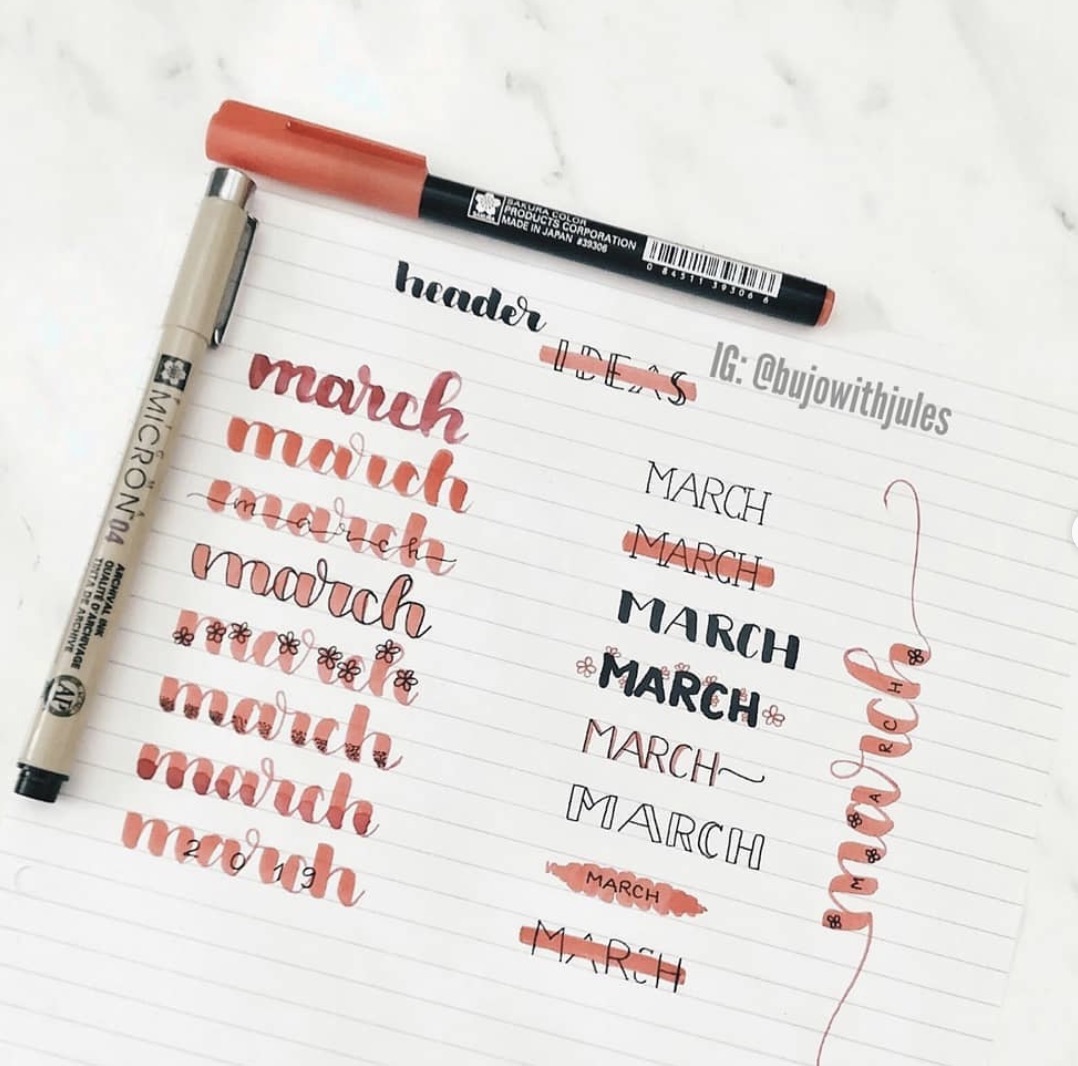 SAKURA COLOR
PRODUCTS CORPORATION
MADE IN JAPAN #39306
0 84511 39306 6
header
IDEAS
IG: @bujowithjules
MICRON 04
ARCHIVAL INK
QUALITÉ D'ARCHIVAGE
TINTA DE ARCHIVE
AP
march
march
march
march
march
march
march
march
march
2019
MARCH
MARCH
MARCH
MARCH
MARCH
MARCH
MARCH
MARCH
march
MARCH